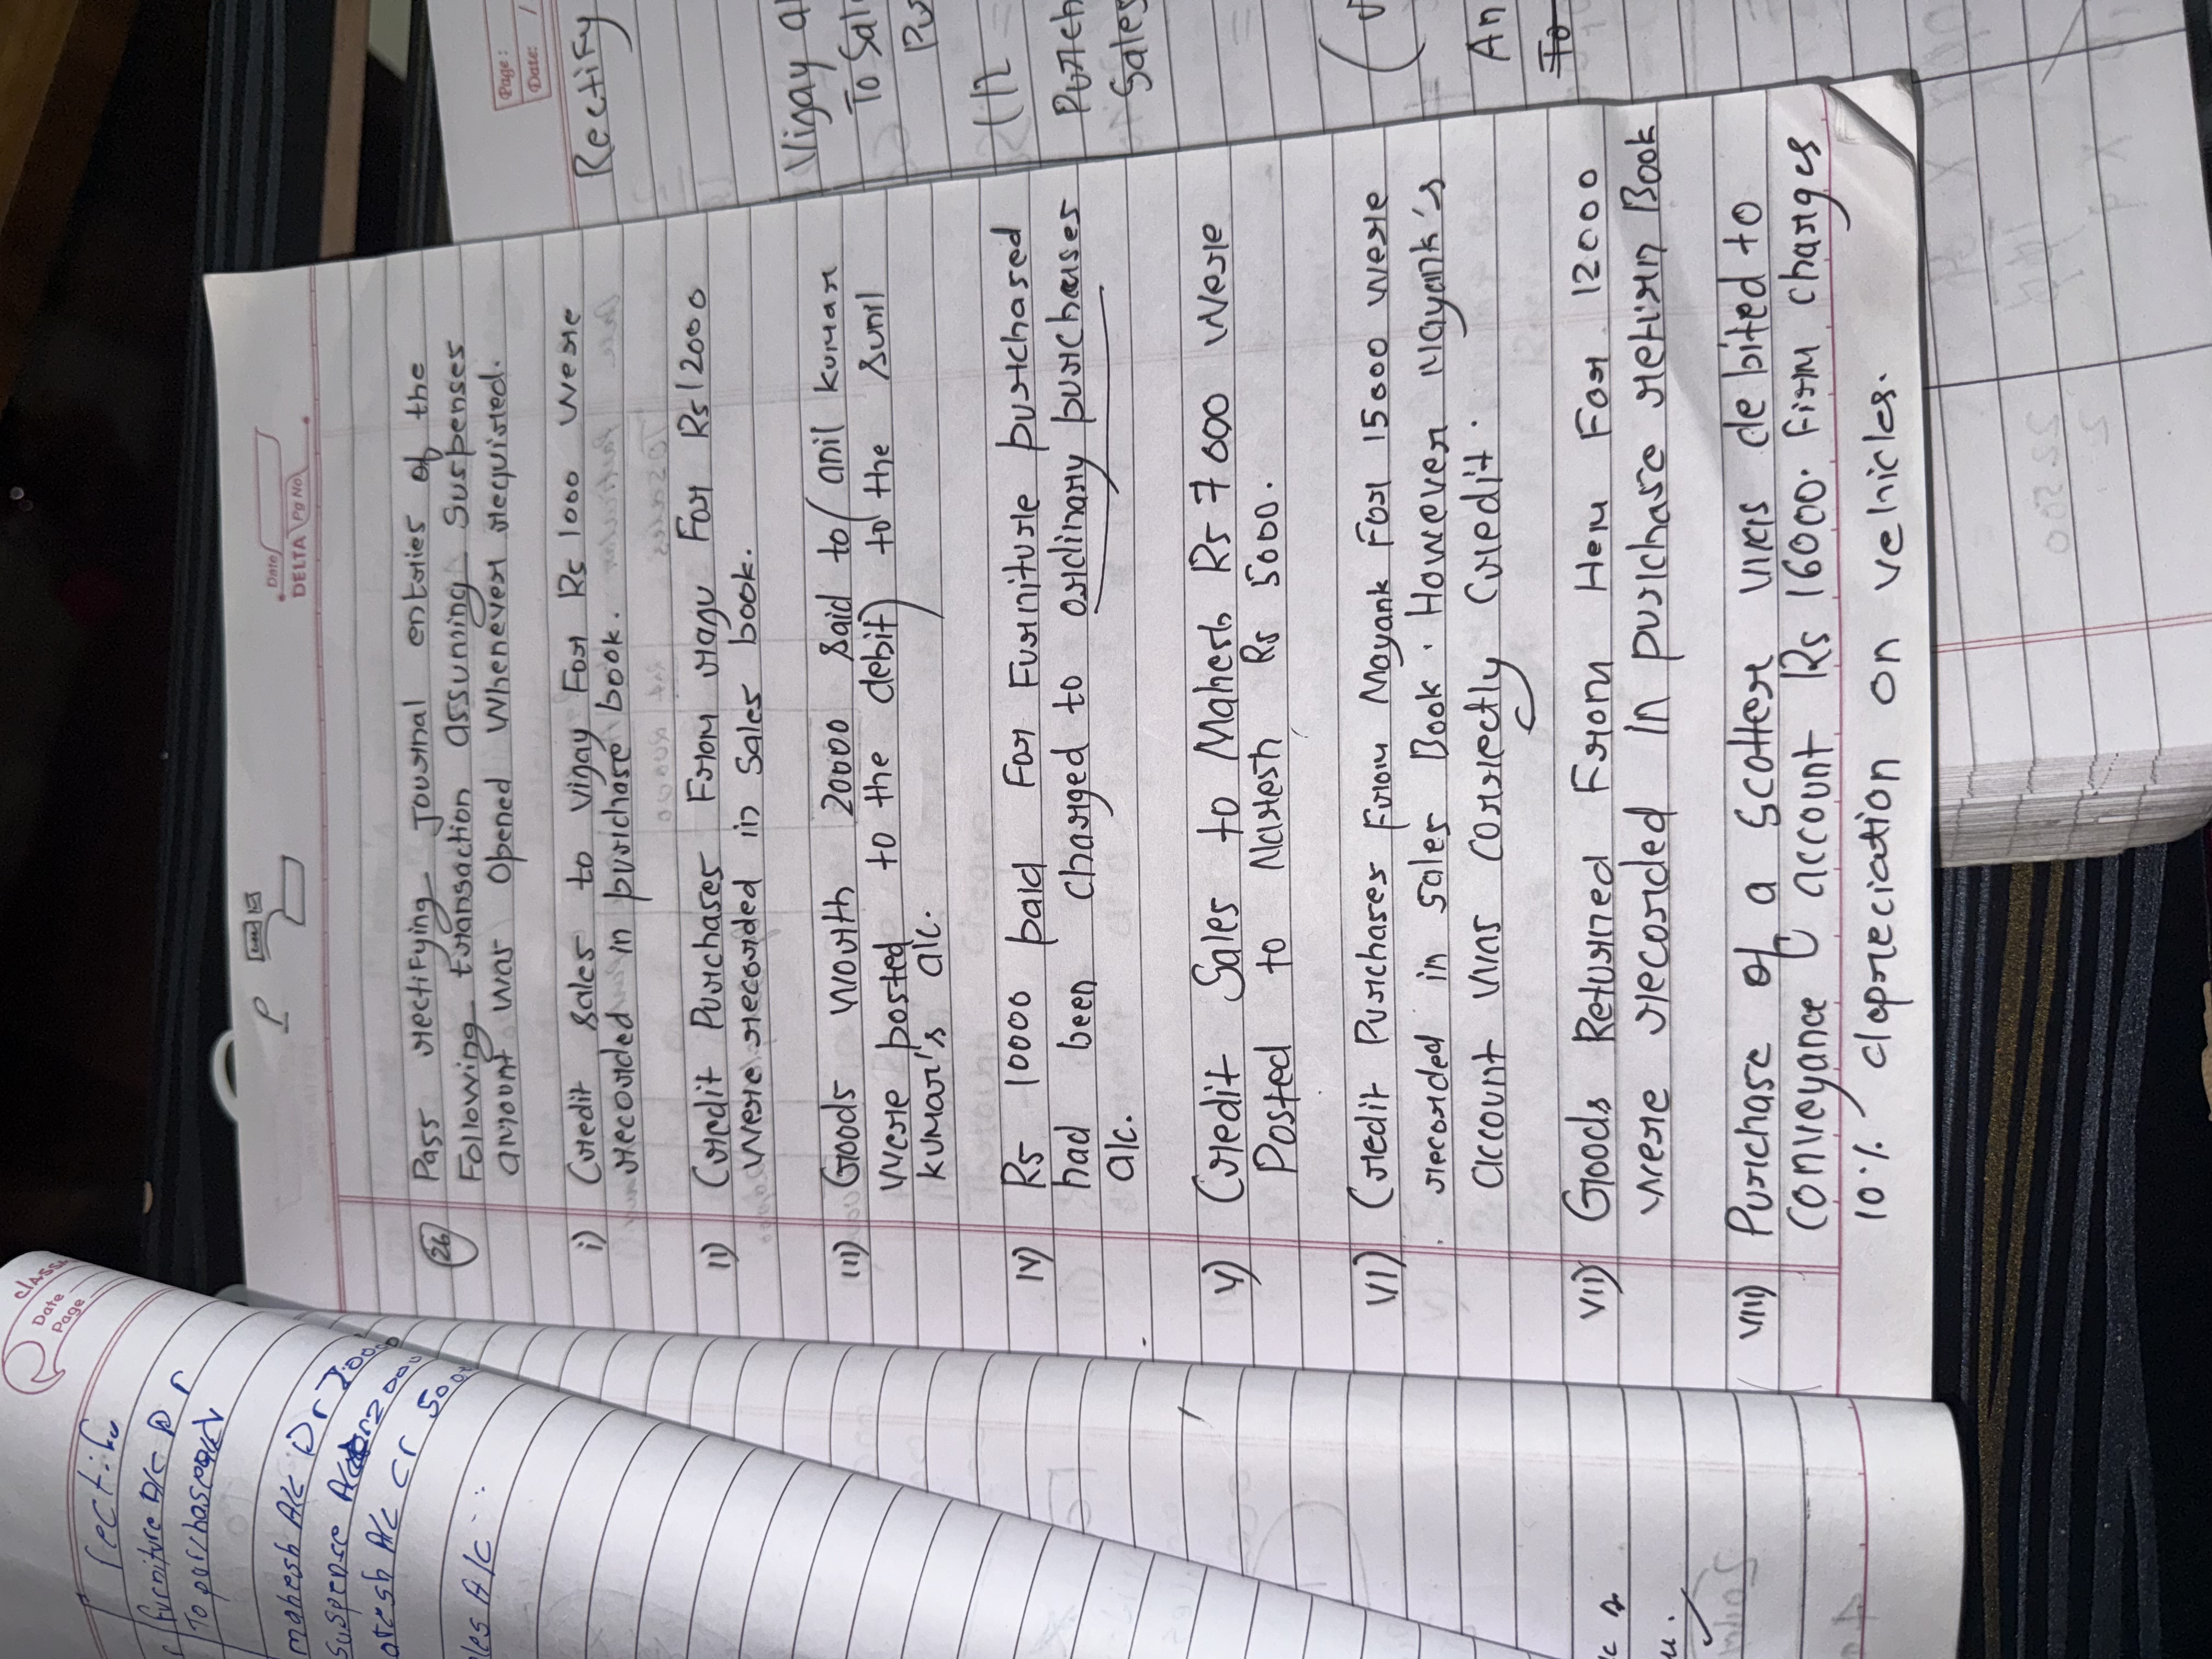 Date
DELTA Pg No
P
26 Pass rectifying Journal entries of the
Following transaction assunning Suspenses
amount was Opened Whenever required.
i) Credit sales to Vinay For Rs 1000 were
recorded in purchase book.
ii) Credit Purchases From ranu For Rs 12000
were recorded in Sales book.
iii) Goods worth 20000 Said to (anil kumar
were posted to the debit) to the sunil
kumar's a/c.
iv) Rs 10000 paid For Furniture purchased
had been charged to ordinary purchases
a/c.
v) Credit Sales to Mahesh Rs 7000 were
Posted to Naresh Rs 5000.
VII) Credit Purchases From Mayank For 15000 were
recorded in sales Book. However Mayank's
account was correctly Credit.
VII) Goods Returned From Hem For 12000
were recorded in purchase return Book
VIII) Purchase of a Scotter was debited to
Conveyance account Rs 16000. Firm charges
10% dapreciation on vehicles.
Page:
Date:
Rectify
To Sal
Purch
Sales
An
To
Date
Page
furniture A/c Dr
mahesh A/c Dr
suspense 2000
A/c Cr
A/c